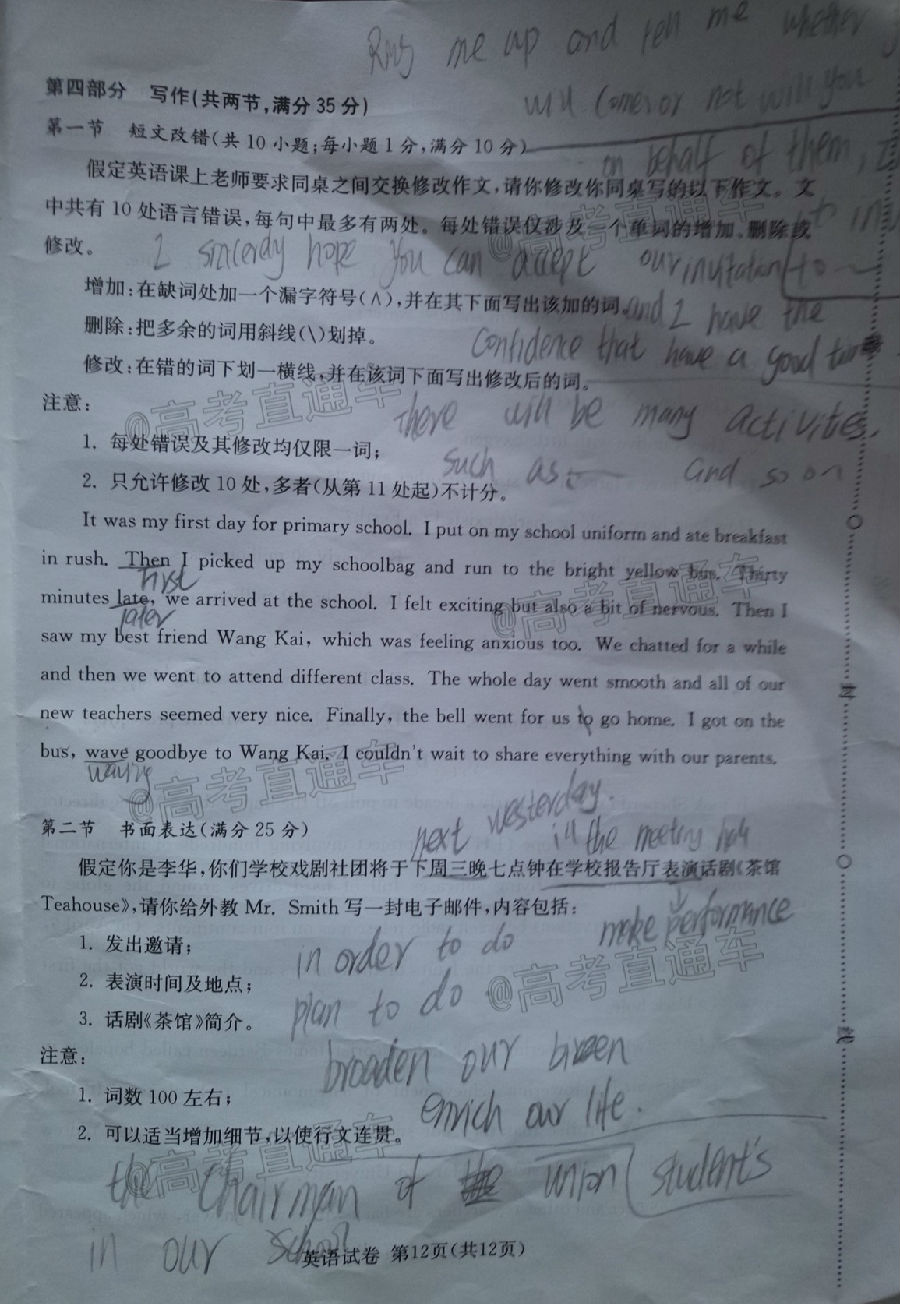 me up and tell me whether
第四部分 写作(共两节,满分35分)
will comes or not will you
第一节 短文改错(共10小题;每小题1分,满分10分)
on behalf of them, I
假定英语课上老师要求同桌之间交换修改作文,请你修改你同桌写的以下作文。文
中共有10处语言错误,每句中最多有两处。每处错误仅涉及一个单词的增加、删除或
修改。
I sincerely hope you can accept our invitation to
增加:在缺词处加一个漏字符号(∧),并在其下面写出该加的词。
and I have the
删除:把多余的词用斜线(\)划掉。
confidence that have a good time
修改:在错的词下划一横线,并在该词下面写出修改后的词。
注意:
There will be many activites,
1. 每处错误及其修改均仅限一词;
such as and so on
2. 只允许修改10处,多者(从第11处起)不计分。
It was my first day for primary school. I put on my school uniform and ate breakfast
in rush. Then I picked up my schoolbag and run to the bright yellow bus. Thirty
first
minutes late, we arrived at the school. I felt exciting but also a bit of nervous. Then I
later
saw my best friend Wang Kai, which was feeling anxious too. We chatted for a while
and then we went to attend different class. The whole day went smooth and all of our
new teachers seemed very nice. Finally, the bell went for us to go home. I got on the
bus, wave goodbye to Wang Kai. I couldn't wait to share everything with our parents.
waving
@高考直通车
第二节 书面表达(满分25分)
next westerday.
in the meeting
假定你是李华,你们学校戏剧社团将于下周三晚七点钟在学校报告厅表演话剧《茶馆
Teahouse》,请你给外教Mr. Smith写一封电子邮件,内容包括:
make performance
1. 发出邀请;
in order to do
2. 表演时间及地点;
plan to do
3. 话剧《茶馆》简介。
注意:
broaden our
1. 词数100左右;
enrich our life.
2. 可以适当增加细节,以使行文连贯。
the Chairman of union student's
in our school
英语试卷 第12页(共12页)
封
线